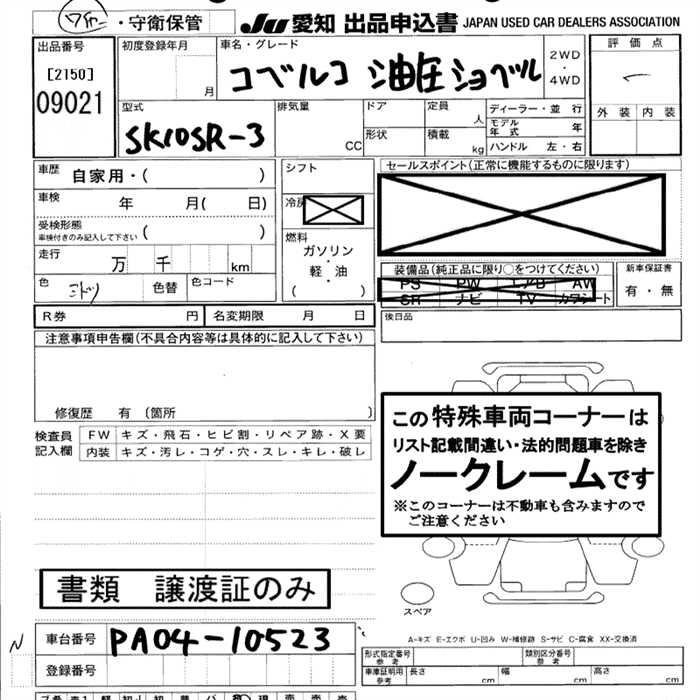 ・守衛保管
JU 愛知 出品申込書 JAPAN USED CAR DEALERS ASSOCIATION
出品番号
[2150]
09021
初度登録年月
月
車名・グレード
コベルコ 油圧ショベル
2WD
・
4WD
評価点
外装 内装
型式
SK10SR-3
排気量
CC
ドア
形状
定員
人
積載
kg
ディーラー・並 行
モデル年式 年
ハンドル 左・右
車歴 自家用・( )
車検 年 月( 日)
受検形態
車検付きのみ記入して下さい ( )
走行 万 千 km
色 ミドリ 色替 色コード
シフト
冷房
燃料
ガソリン
・
軽・油
( )
セールスポイント(正常に機能するものに限ります)
装備品(純正品に限り○をつけてください)
PS PW エアB AW
SR ナビ TV カワシート
新車保証書
有・無
R券 円 名変期限 月 日
後日品
注意事項申告欄(不具合内容等は具体的に記入して下さい)
修復歴 有 (箇所 )
検査員
記入欄
FW キズ・飛石・ヒビ割・リペア跡・X要
内装 キズ・汚レ・コゲ・穴・スレ・キレ・破レ
この特殊車両コーナーは
リスト記載間違い・法的問題車を除き
ノークレームです
※このコーナーは不動車も含みますので
ご注意ください
スペア
書類 譲渡証のみ
A-キズ E-エクボ U-凹み W-補修跡 S-サビ C-腐食 XX-交換済
N
車台番号 PA04-10523
登録番号
形式指定番号
参考
類別区分番号
参考
車庫証明用
参考
長さ cm 幅 cm 高さ cm